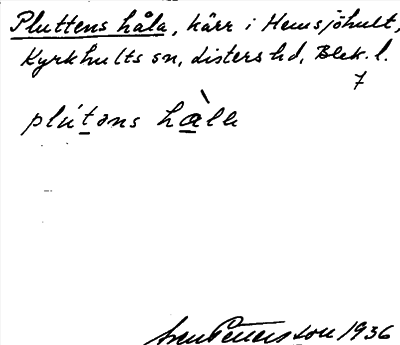 Pluttens håla, kärr i Hemsjöhult,
Kyrkhults sn, Listers hd, Blek. l.
7
plút̲əns hà̲la
Sven Petersson 1936